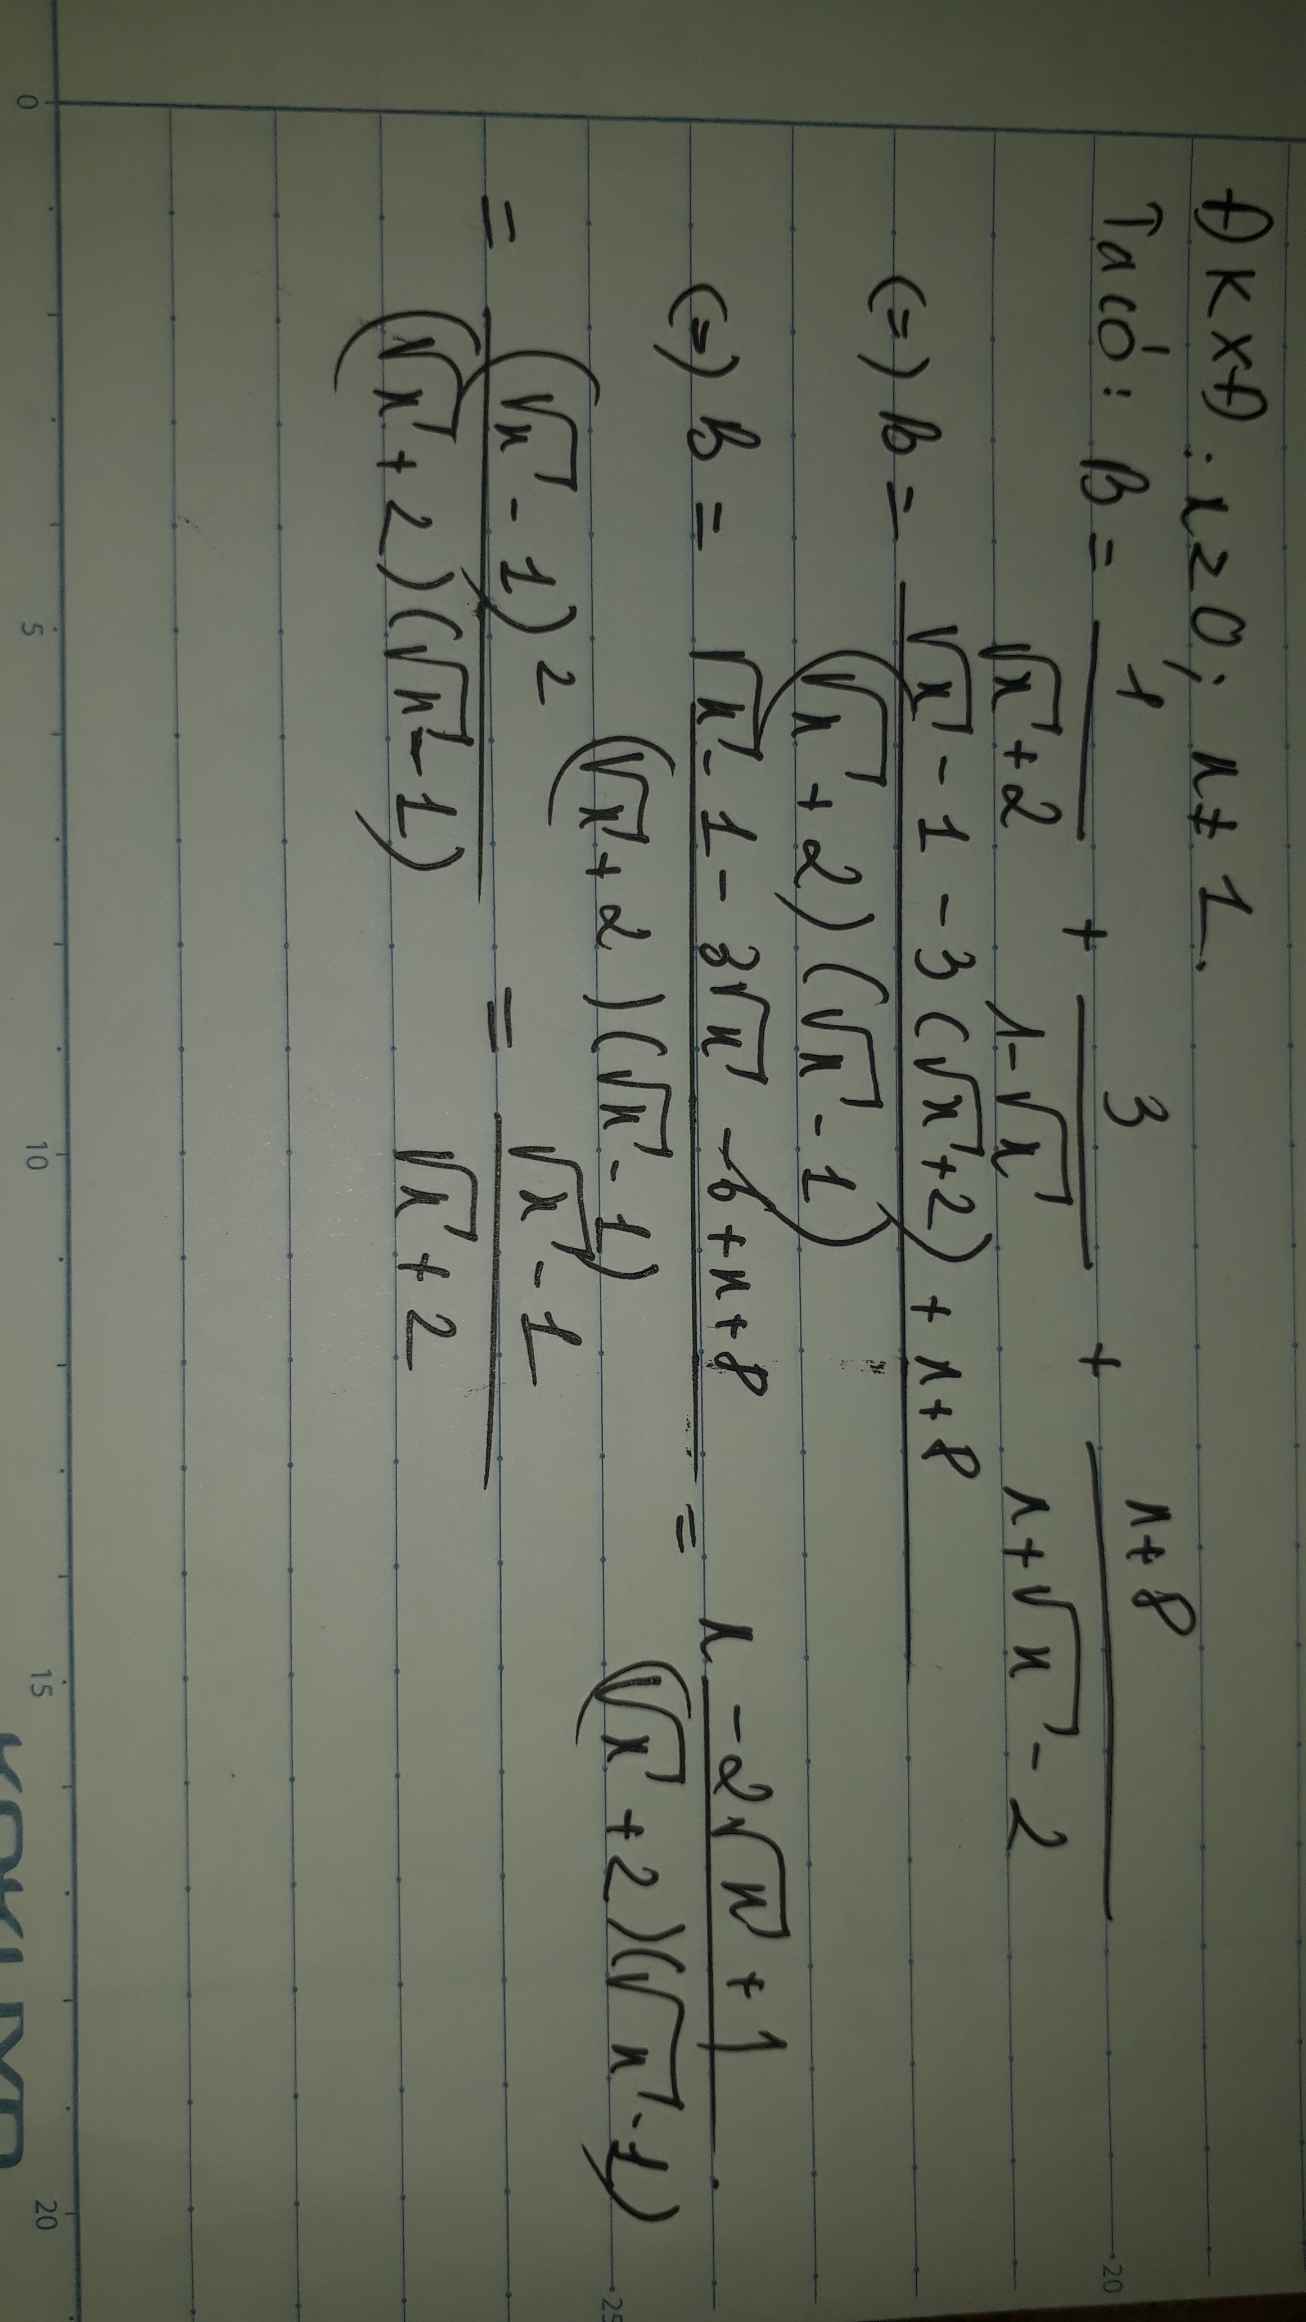 ĐKXĐ: x ≥ 0; x ≠ 1.
Ta có: B = 1/(√x + 2) + 3/(1 - √x) + (x + 8)/(x + √x - 2)
(=) B = (√x - 1 - 3(√x + 2) + x + 8)/((√x + 2)(√x - 1))
(=) B = (√x - 1 - 3√x - 6 + x + 8)/((√x + 2)(√x - 1)) = (x - 2√x + 1)/((√x + 2)(√x - 1)).
= (√x - 1)²/((√x + 2)(√x - 1)) = (√x - 1)/(√x + 2)
0 5 10 15 20
20
25